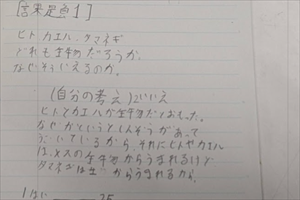 ヒト、カエル、タマネギ
どれも生物だろうか。
なぜそういえるのか。
(自分の考え) いいえ
ヒトとカエルが生物だとおもった。
なぜかというとしんぞうがあって
うごいているから、それにヒトやカエルは
メスの生物からうまれるけど
タマネギは からうまれるから。
1はい 25